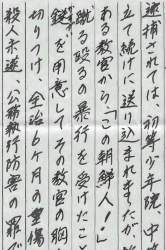 逮捕されては初等少年院、中
立て続けに送り込まれましたが
ある教官から「この朝鮮人!」
蹴る殴るの暴行を受けたこと
を用意してその教官の胸
切りつけ、全治6ケ月の重傷
殺人未遂、公務執行妨害の罪で